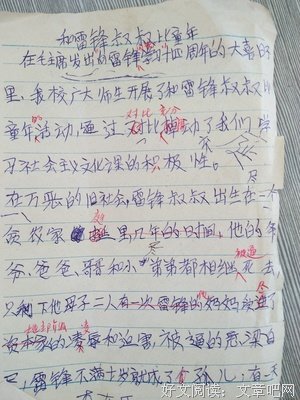 和雷锋叔叔比童年
在毛主席发出向雷锋学习十四周年的大喜日
里，我校广大师生开展了和雷锋叔叔比
童年活动，通过对比 对比教育 动了我们学
习社会主义文化课的积极性。
在万恶的旧社会，雷锋叔叔出生在一个
贫农家庭里几年的日间，他的爷
爷、爸爸、哥哥和小弟弟都相继 被逼 死去 尽
只剩下他母子二人有一次雷锋的妈妈 遭
地主阶级 家的凌辱和迫害，被逼的悬梁自
尽，雷锋不满十岁就成了孤儿，有一天
好文阅读：文章吧网